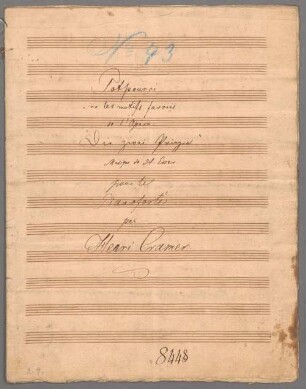 No 43
Potpourri
sur les motifs favoris
de l'Opera
Die zwei Prinzen"
Musique de H. Esser
pour le
Pianoforte
par
Henri Cramer
8448